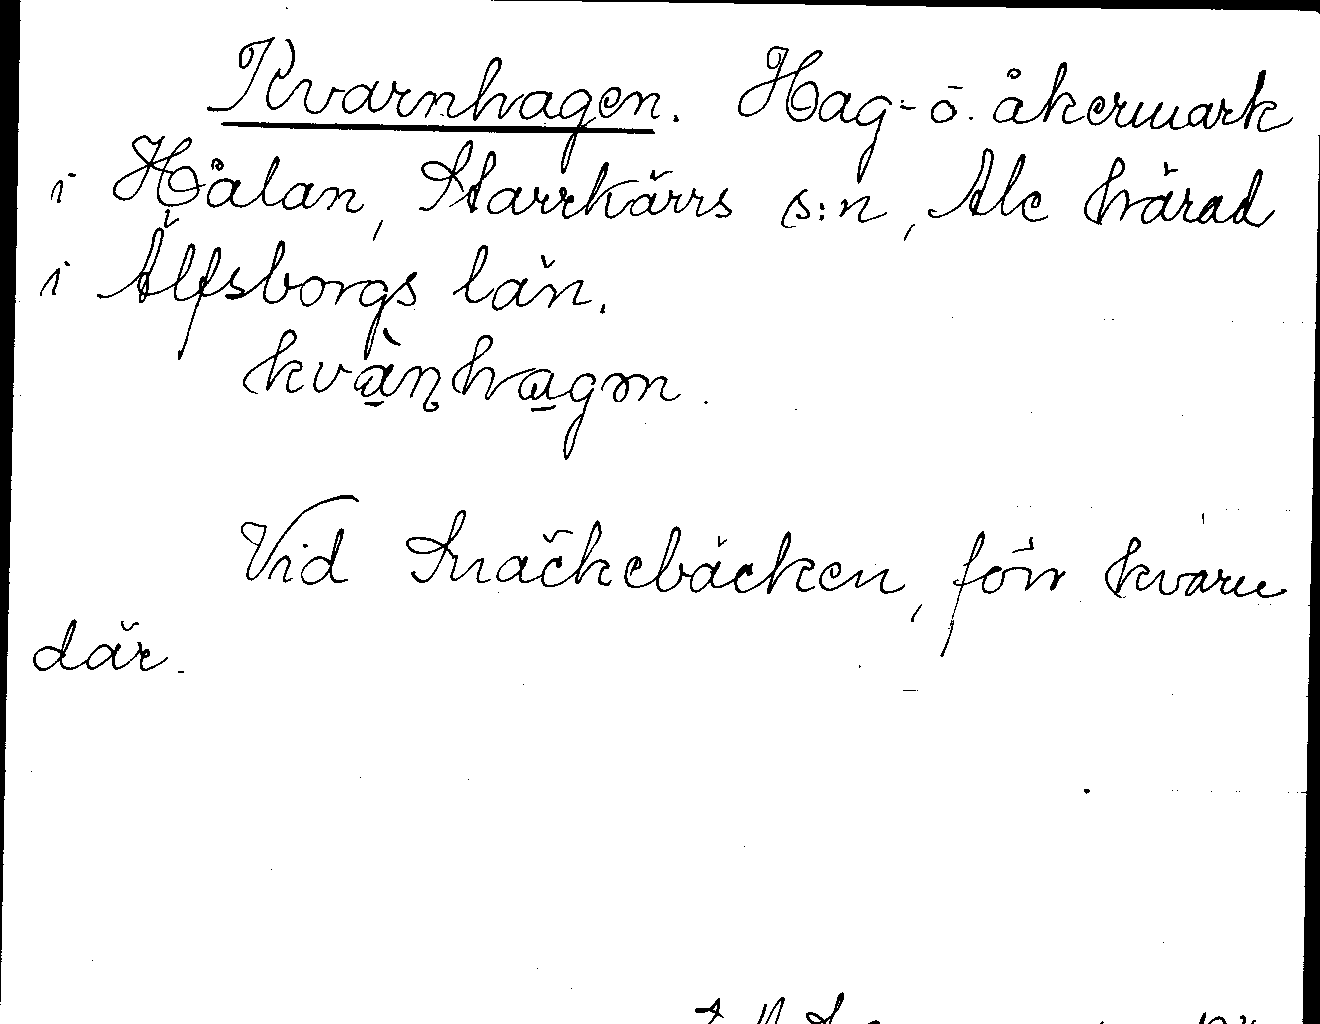 Kvarnhagen. Hag- o. åkermark
i Hålan, Starrkärrs s:n, Ale härad
i Älfsborgs län.
kvànhagən.
Vid Snäckebäcken, förr kvarn
där.